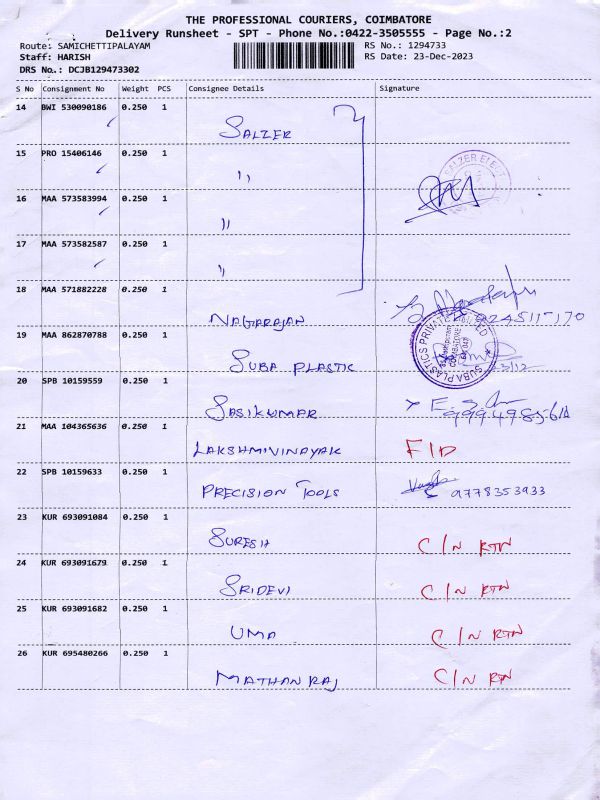 THE PROFESSIONAL COURIERS, COIMBATORE
Delivery Runsheet - SPT - Phone No.:0422-3505555 - Page No.:2
Route: SAMICHETTIPALAYAM RS No.: 1294733
Staff: HARISH RS Date: 23-Dec-2023
DRS No.: DCJB129473302
S No Consignment No Weight PCS Consignee Details Signature
14 BWI 530090186 0.250 1 SALZER
15 PRO 15406146 0.250 1 ,,
16 MAA 573583994 0.250 1 ,,
17 MAA 573582587 0.250 1 ,,
18 MAA 571882228 0.250 1 NAGARAJAN
19 MAA 862870788 0.250 1 SUBA PLASTIC SUBA PLASTICS PRIVATE LIMITED COIMBATORE 23/12
20 SPB 10159559 0.250 1 SASIKUMAR
21 MAA 104365636 0.250 1 LAKSHMIVINAYAK F/D
22 SPB 10159633 0.250 1 PRECISION TOOLS 9778353933
23 KUR 693091084 0.250 1 SURESH C/N RTN
24 KUR 693091679 0.250 1 SRIDEVI C/N RTN
25 KUR 693091682 0.250 1 UMA C/N RTN
26 KUR 695480266 0.250 1 MATHAN RAJ C/N RTN